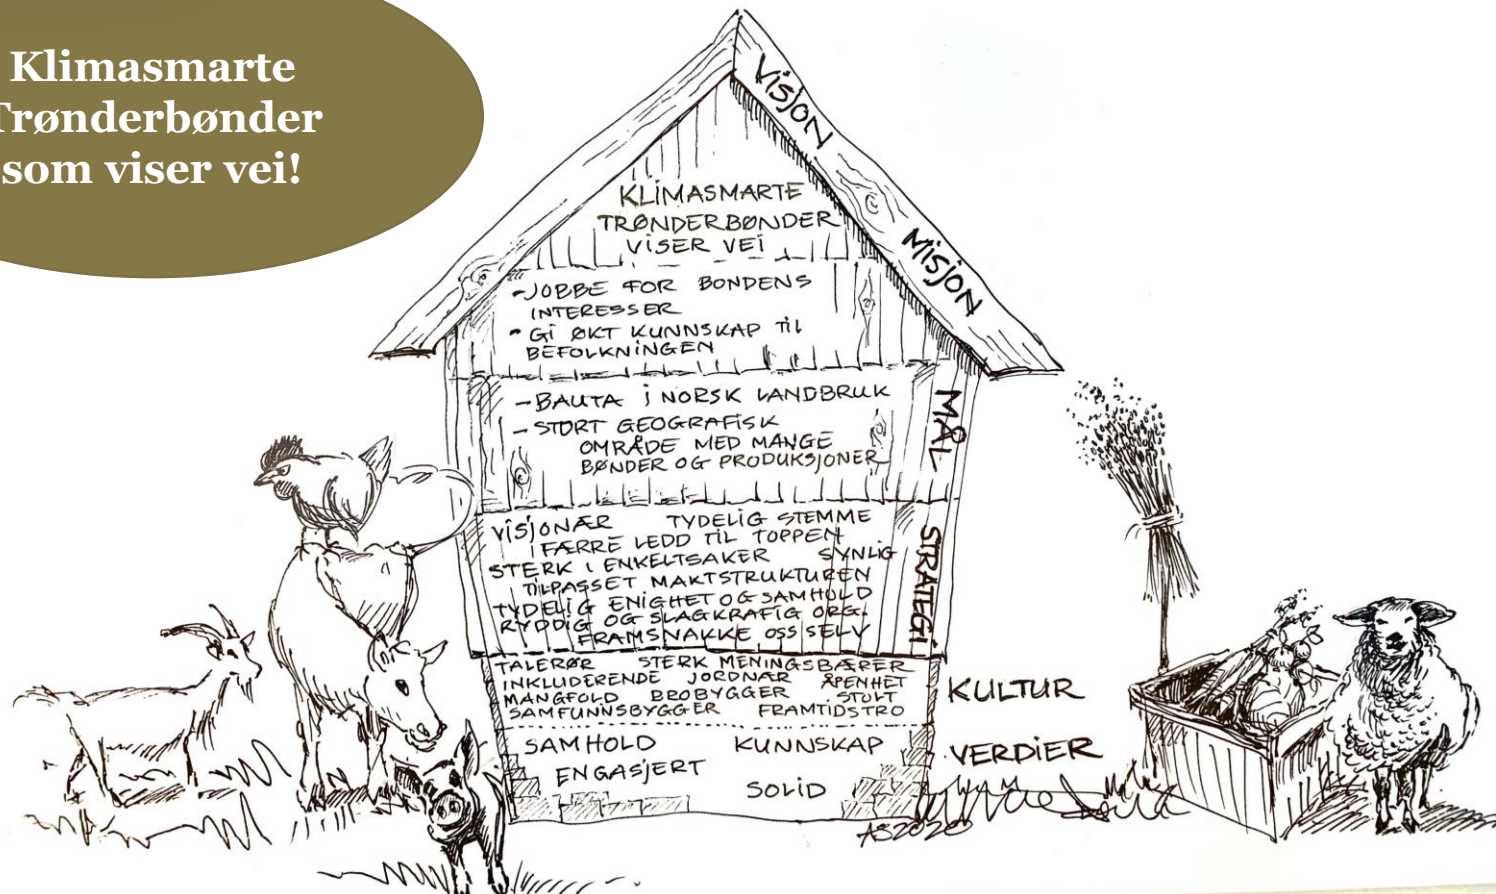 Klimasmarte
Trønderbønder
som viser vei!
VISJON
MISJON
KLIMASMARTE
TRØNDERBØNDER
VISER VEI
- JOBBE FOR BONDENS
INTERESSER
- GI ØKT KUNNSKAP TIL
BEFOLKNINGEN
MÅL
- BAUTA I NORSK LANDBRUK
- STORT GEOGRAFISK
OMRÅDE MED MANGE
BØNDER OG PRODUKSJONER
STRATEGI
VISJONÆR TYDELIG STEMME
FÆRRE LEDD TIL TOPPEN
STERK I ENKELTSAKER SYNLIG
TILPASSET MAKTSTRUKTUREN
TYDELIG ENIGHET OG SAMHOLD
RYDDIG OG SLAGKRAFIG ORG.
FRAMSNAKKE OSS SELV
TALERØR STERK MENINGSBÆRER
INKLUDERENDE JORDNÆR ÅPENHET
MANGFOLD BROBYGGER STOLT
SAMFUNNSBYGGER FRAMTIDSTRO
KULTUR
SAMHOLD KUNNSKAP
ENGASJERT
SOLID
VERDIER
AS2020